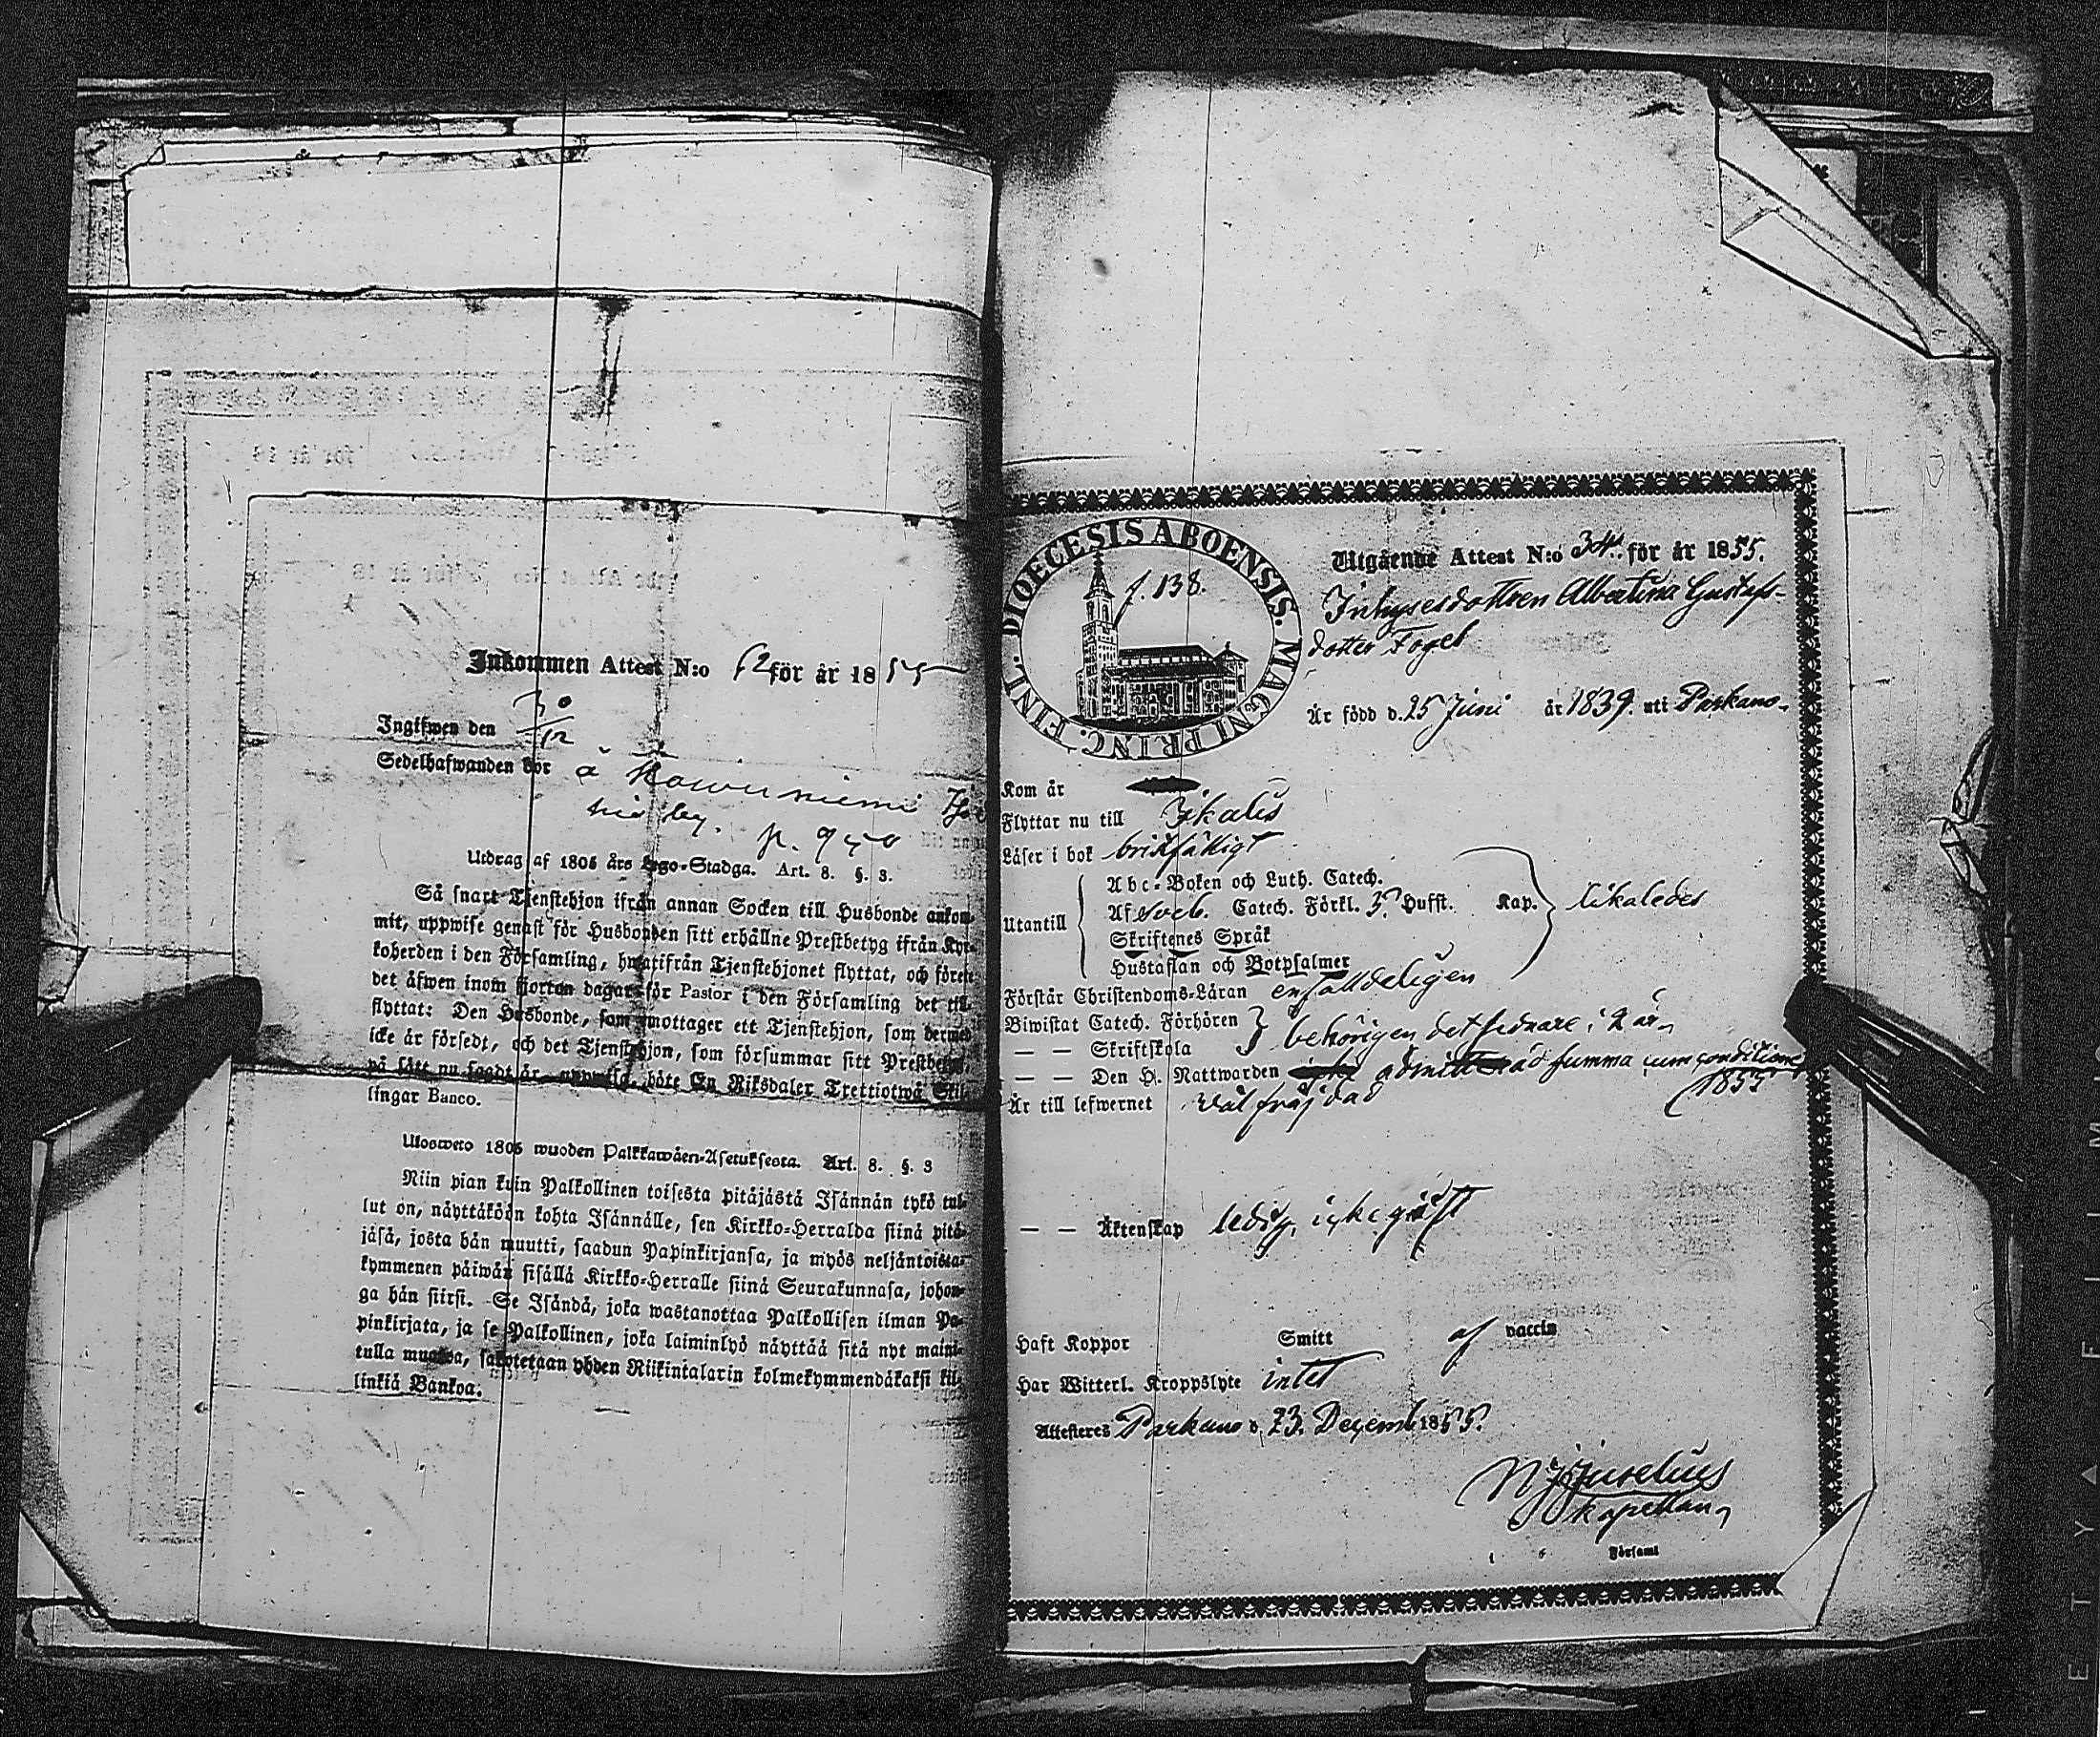 Inkommen Attest N:o 62 för år 1855
Ingifwen den 30/12
Sedelhafwanden bor å
by. p. 950
Utdrag af 1805 års Lego-Stadga. Art. 8. §. 3.
Så snart Tjenstehjon ifrån annan Socken till Husbonde ankom-
mit, uppwise genast för Husbonden sitt erhållne Prestbetyg ifrån Kyr-
koherden i den Församling, hwarifrån Tjenstehjonet flyttat, och förete
det äfwen inom fjorton dagar för Pastor i den Församling det till-
flyttat: Den Husbonde, som emottager ett Tjenstehjon, som dermed
icke är försedt, och det Tjenstehjon, som försummar sitt Prestbetyg,
på sätt nu sagdt är, uppwisa, böte En Riksdaler Trettiotwå Skil-
lingar Banco.
Ulosweto 1805 wuoden Palkkawäen-Asetuksesta. Art. 8. §. 3
Niin pian kuin Palkollinen toisesta pitäjästä Isännän tykö tul-
lut on, näyttäköön kohta Isännälle, sen Kirkko-Herralda siinä pitä-
jäsä, josta hän muutti, saadun Papinkirjansa, ja myös neljäntoista-
kymmenen päiwän sisällä Kirkko-Herralle siinä Seurakunnasa, johon-
ga hän siirsi. Se Isändä, joka wastanottaa Palkollisen ilman Pa-
pinkirjata, ja se Palkollinen, joka laiminlyö näyttää sitä nyt maini-
tulla muotoa, sakotetaan yhden Riikintalarin kolmekymmendäkaksi kil-
linkiä Bankoa.
DIOECESIS ABOENSIS. MAGNI PRINC. FINL.
f. 138.
Utgående Attest N:o 34. för år 1855.
Inhysesdottren Albertina Gustafs-
dotter Fogel
Är född d. 25 Juni år 1839. uti Parkano.
Kom år
Flyttar nu till Ikalis
Läser i bok bristfälligt
Utantill
Abc-Boken och Luth. Catech.
Af Sveb. Catech. Förkl. 5. Hufst. Kap. likaledes
Skriftenes Språk
Hustaflan och Botpsalmer
Förstår Christendoms-Läran enfalldeligen
Biwistat Catech. Förhören
— — Skriftskola behörigen det sednare i 2 år
— — Den H. Nattwarden ad summa cum conditione
1855
Är till lefwernet wäl fräjdad
— — Äktenskap ledig, icke gift
Haft Koppor Smitt af vaccin
Har Witterl. Kroppslyte intet
Attesteres Parkano d. 23. Decemb. 1855.
kapellan
Församl